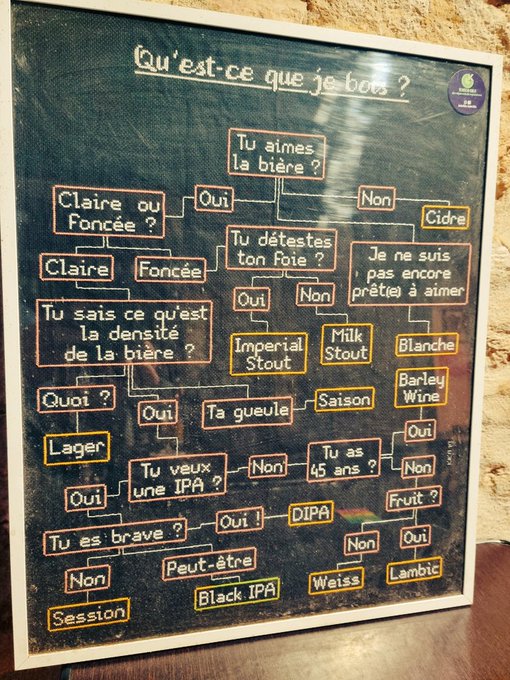 Qu'est-ce que je bois ?
Tu aimes
la bière ?
Oui
Non
Cidre
Claire ou
Foncée ?
Claire
Foncée
Tu détestes
ton foie ?
Oui
Non
Imperial
Stout
Milk
Stout
Je ne suis
pas encore
prêt(e) à aimer
Blanche
Tu sais ce qu'est
la densité
de la bière ?
Quoi ?
Lager
Oui
Ta gueule
Saison
Barley
Wine
Tu veux
une IPA ?
Non
Tu as
45 ans ?
Oui
Non
Oui
Fruit ?
Tu es brave ?
Oui !
DIPA
Non
Oui
Non
Peut-être
Weiss
Lambic
Session
Black IPA